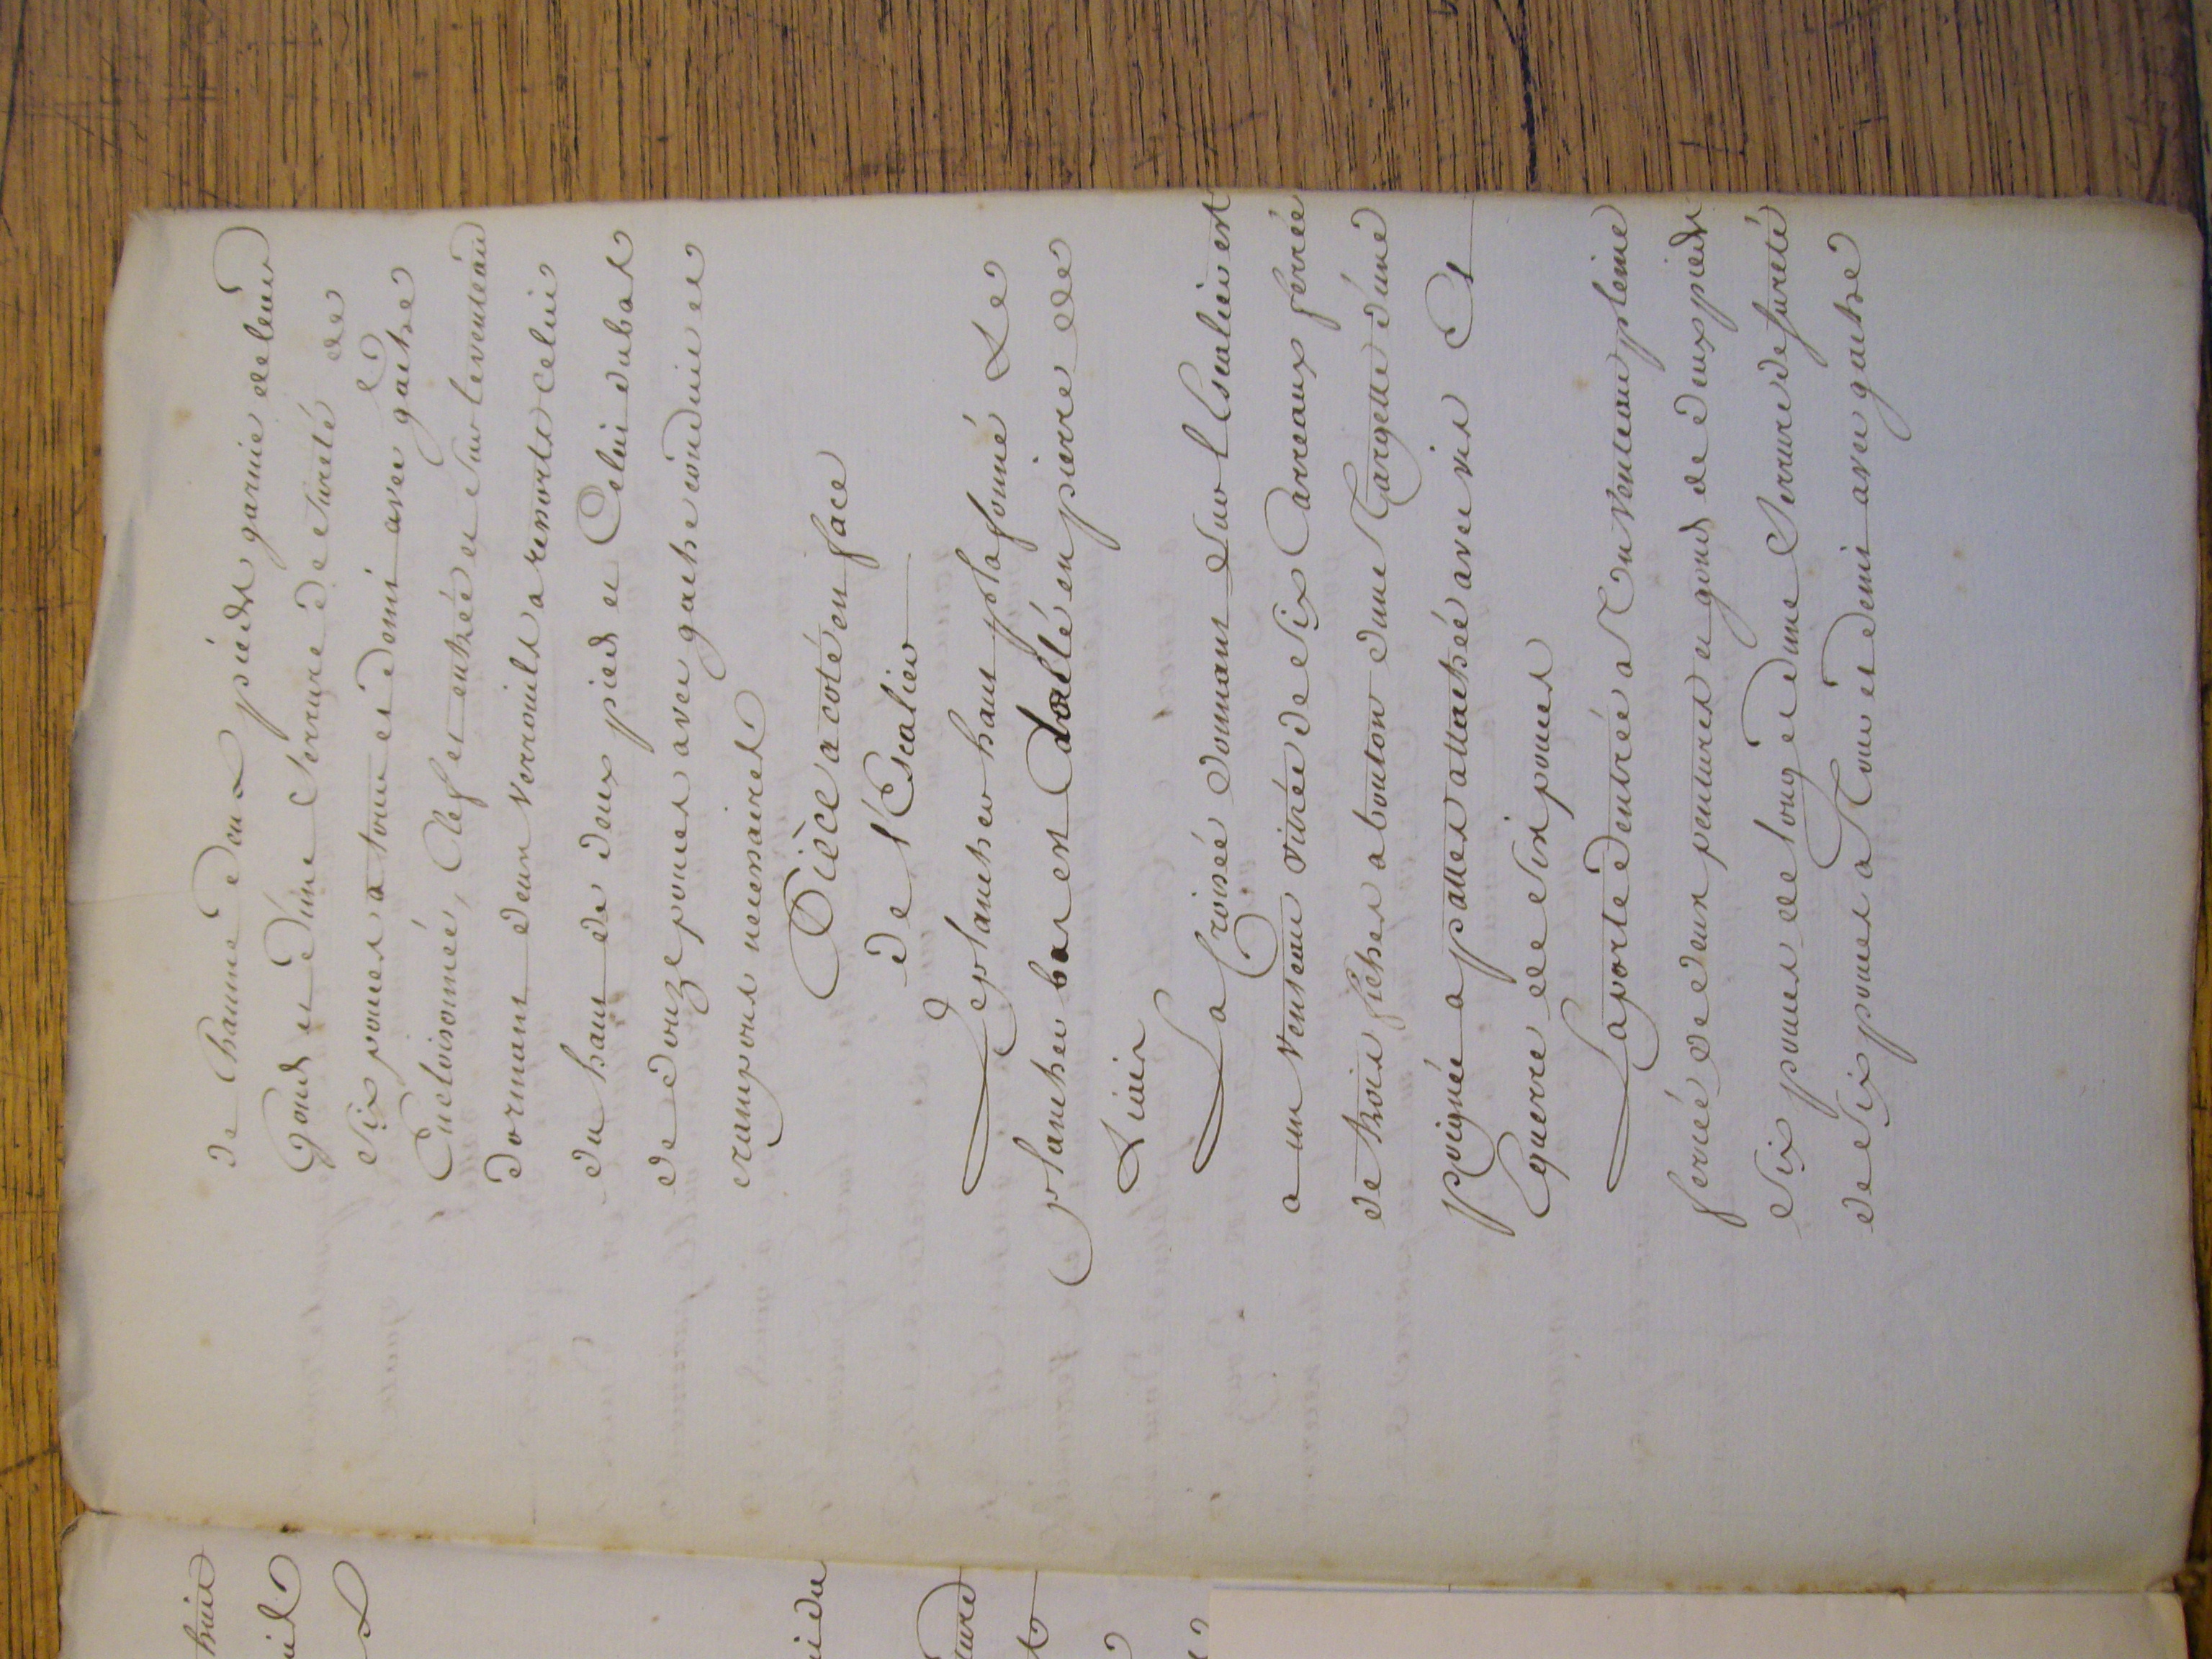 de Chacune deux pieds garnie de leur
Gonds et d'une Serrure de Sureté de
Six pouces a tour et demi avec gache
Encloisonnée, Clef et entrée et Sur le venteau
dormant deux verrouils a resorts celui
du haut de deux pieds et Celui du bas
de douze pouces avec gache conduit et
crampons necessaires
Pièce a coté en face
de l'Escalier
Le plancher haut plafonné Le
plancher bas est dallé en pierre de
Liais
La Croisée donnant Sur l'Escalier est
a un venteau vitrée de Six Carreaux ferrée
de trois fiches a bouton d'une Targette d'une
poignée a pattes attachée avec vis Et
Equerre de Six pouces
La porte d'entrée a Un venteau pleine
ferrée de deux pentures et gonds de deux pieds
Six pouces de long et d'une Serrure de sureté
de Six pouces a Tour et demi avec gache
huit
idu